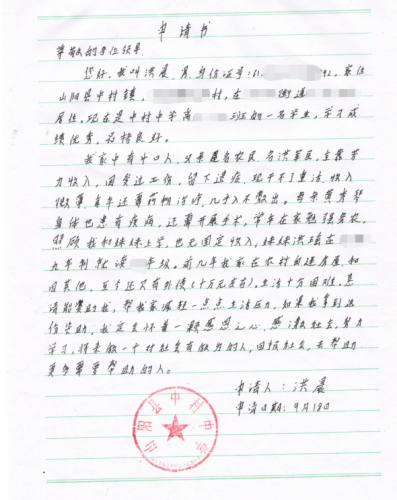 申请书
尊敬的各位领导:
您好,我叫洪晨,身份证号:61 92,家住
山阳县中村镇 村,在 街道
居住,现在是中村中学高 班的一名学生,学习成
绩优秀,品格良好。
我家中有4口人,父亲是名农民,名洪军民,主靠劳
力收入,因受过工伤,留下遗症,现干不了重活,收入
微薄,去年还靠药物治疗,几乎入不敷出。母亲黄秀琴
身体也患有疾病,还靠开展手术,常年在家勉强务农,
照顾我和妹妹上学,也无固定收入,妹妹洪 在
九年制就读 年级。前几年我家在农村自建房屋,和
因其他,至今还欠有外债(十万元左右),生活十万困难,恳
请能资助我,帮我家减轻一点点生活压力,如果我拿到这
份资助,我定会怀着一颗感恩之心,感激社会,努力
学习,将来做一个对社会有做为的人,回报社会,去帮助
更多需要帮助的人。
申请人:洪晨
申请日期:9月18日
山阳县中村中学